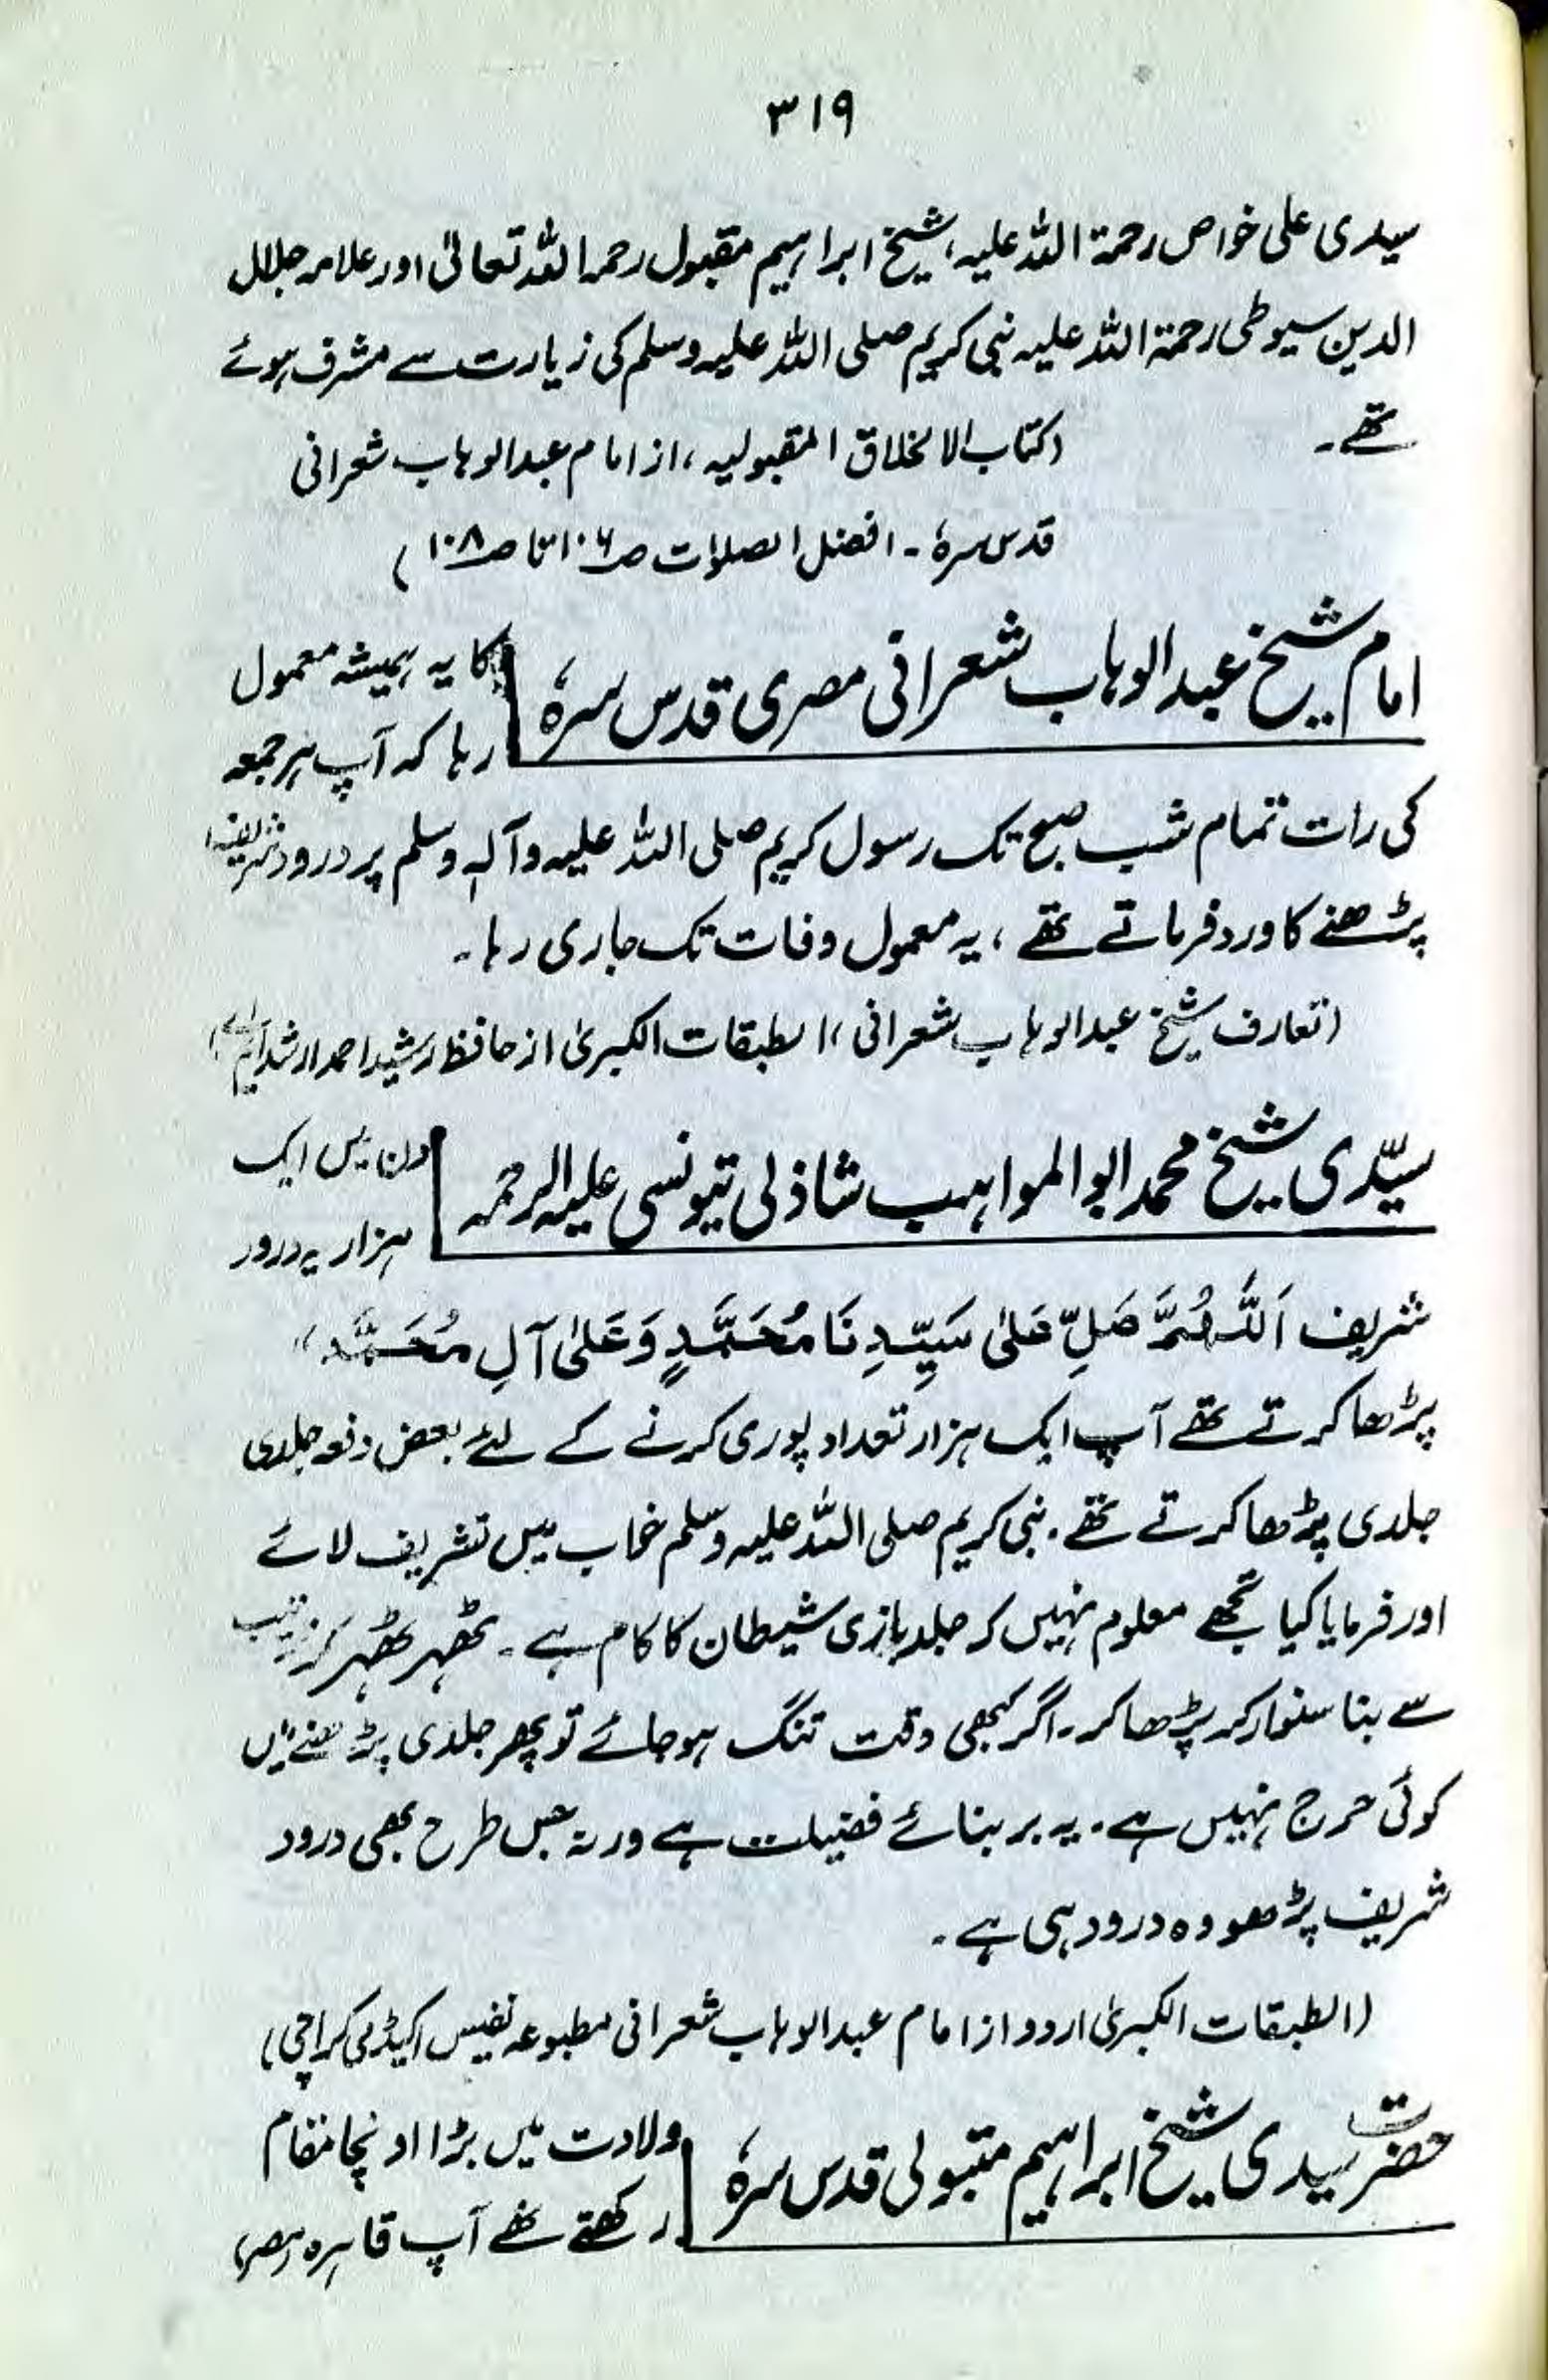 ۳۱۹
سیدی علی خواص رحمۃ اللہ علیہ، شیخ ابراہیم مقبول رحمہ اللہ تعالیٰ اور علامہ جلال
الدین سیوطی رحمۃ اللہ علیہ نبی کریم صلی اللہ علیہ وسلم کی زیارت سے مشرف ہوئے
تھے۔
(کتاب الاخلاق المقبولیہ، از امام عبدالوہاب شعرانی
قدس سرہٗ ۔ افضل الصلوات ص۱۰۶ تا ص۱۰۸)
امام شیخ عبدالوہاب شعرانی مصری قدس سرہٗ
کا یہ ہمیشہ معمول
رہا کہ آپ ہر جمعہ
کی رات تمام شب صبح تک رسول کریم صلی اللہ علیہ وآلہٖ وسلم پر درود شریف
پڑھنے کا ورد فرماتے تھے، یہ معمول وفات تک جاری رہا۔
(تعارف شیخ عبدالوہاب شعرانی، الطبقات الکبریٰ از حافظ رشید احمد ارشد ایم اے)
سیّدی شیخ محمد ابوالمواہب شاذلی تیونسی علیہ الرحمہ
دن میں ایک
ہزار یہ درود
شریف اَللّٰہُمَّ صَلِّ عَلیٰ سَیِّدِنَا مُحَمَّدٍ وَعَلیٰ آلِ مُحَمَّدٍ)
پڑھا کرتے تھے آپ ایک ہزار تعداد پوری کرنے کے لئے بعض دفعہ جلدی
جلدی پڑھا کرتے تھے۔ نبی کریم صلی اللہ علیہ وسلم خواب میں تشریف لائے
اور فرمایا کیا تجھے معلوم نہیں کہ جلد بازی شیطان کا کام ہے۔ ٹھہر ٹھہر کر ترتیب
سے بنا سنوار کر پڑھا کر۔ اگر کبھی وقت تنگ ہو جائے تو پھر جلدی پڑھنے میں
کوئی حرج نہیں ہے۔ یہ بر بنائے فضیلت ہے ورنہ جس طرح بھی درود
شریف پڑھو وہ درود ہی ہے۔
(الطبقات الکبریٰ اردو از امام عبدالوہاب شعرانی مطبوعہ نفیس اکیڈمی کراچی)
حضرت سیدی شیخ ابراہیم متبولی قدس سرہٗ
ولادت میں بڑا اونچا مقام
رکھتے تھے آپ قاہرہ (مصر)